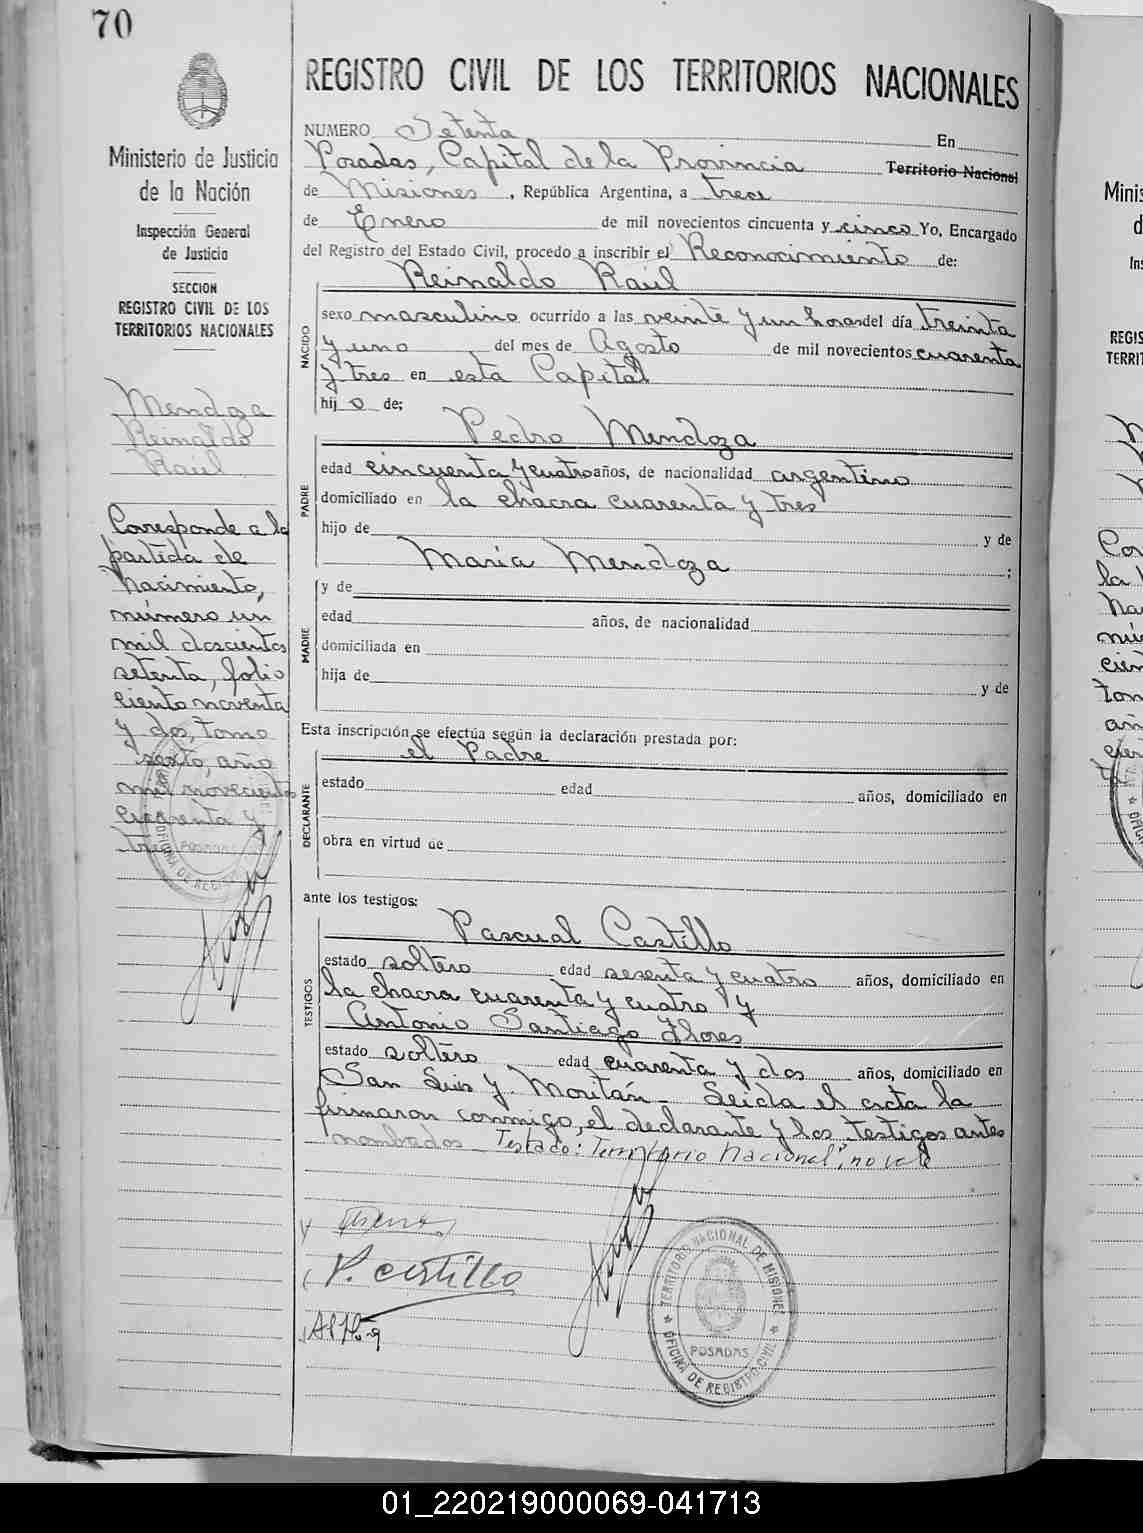 70
REGISTRO CIVIL DE LOS TERRITORIOS NACIONALES
Ministerio de Justicia
de la Nación
Inspección General
de Justicia
SECCION
REGISTRO CIVIL DE LOS
TERRITORIOS NACIONALES
Mendoza
Reinaldo
Raúl
Corresponde a la
partida de
Nacimiento,
número un
mil doscientos
setenta, folio
ciento noventa
y dos, tomo
sexto, año
mil novecientos
cuarenta y
tres
NUMERO Setenta En
Posadas, Capital de la Provincia Territorio Nacional
de Misiones, República Argentina, a trece
de Enero de mil novecientos cincuenta y cinco Yo, Encargado
del Registro del Estado Civil, procedo a inscribir el Reconocimiento de:
Reinaldo Raúl
NACIDO
sexo masculino ocurrido a las veinte y un horas del día treinta
y uno del mes de Agosto de mil novecientos cuarenta
y tres en esta Capital
hijo de;
Pedro Mendoza
PADRE
edad cincuenta y cuatro años, de nacionalidad argentino
domiciliado en la chacra cuarenta y tres
hijo de y de
María Mendoza ;
MADRE
y de
edad años, de nacionalidad
domiciliada en
hija de y de
Esta inscripción se efectúa según la declaración prestada por:
el Padre
DECLARANTE
estado edad años, domiciliado en
obra en virtud de
ante los testigos:
Pascual Castillo
TESTIGOS
estado soltero edad sesenta y cuatro años, domiciliado en
la chacra cuarenta y cuatro y
Antonio Santiago Flores
estado soltero edad cuarenta y dos años, domiciliado en
San Luis y Moritán - Leida el acta la
firmaron conmigo, el declarante y los testigos antes
nombrados Testado: "Territorio Nacional", no vale
P. castillo
TERRITORIO NACIONAL DE MISIONES
POSADAS
OFICINA DE REGISTRO CIVIL
01_220219000069-041713